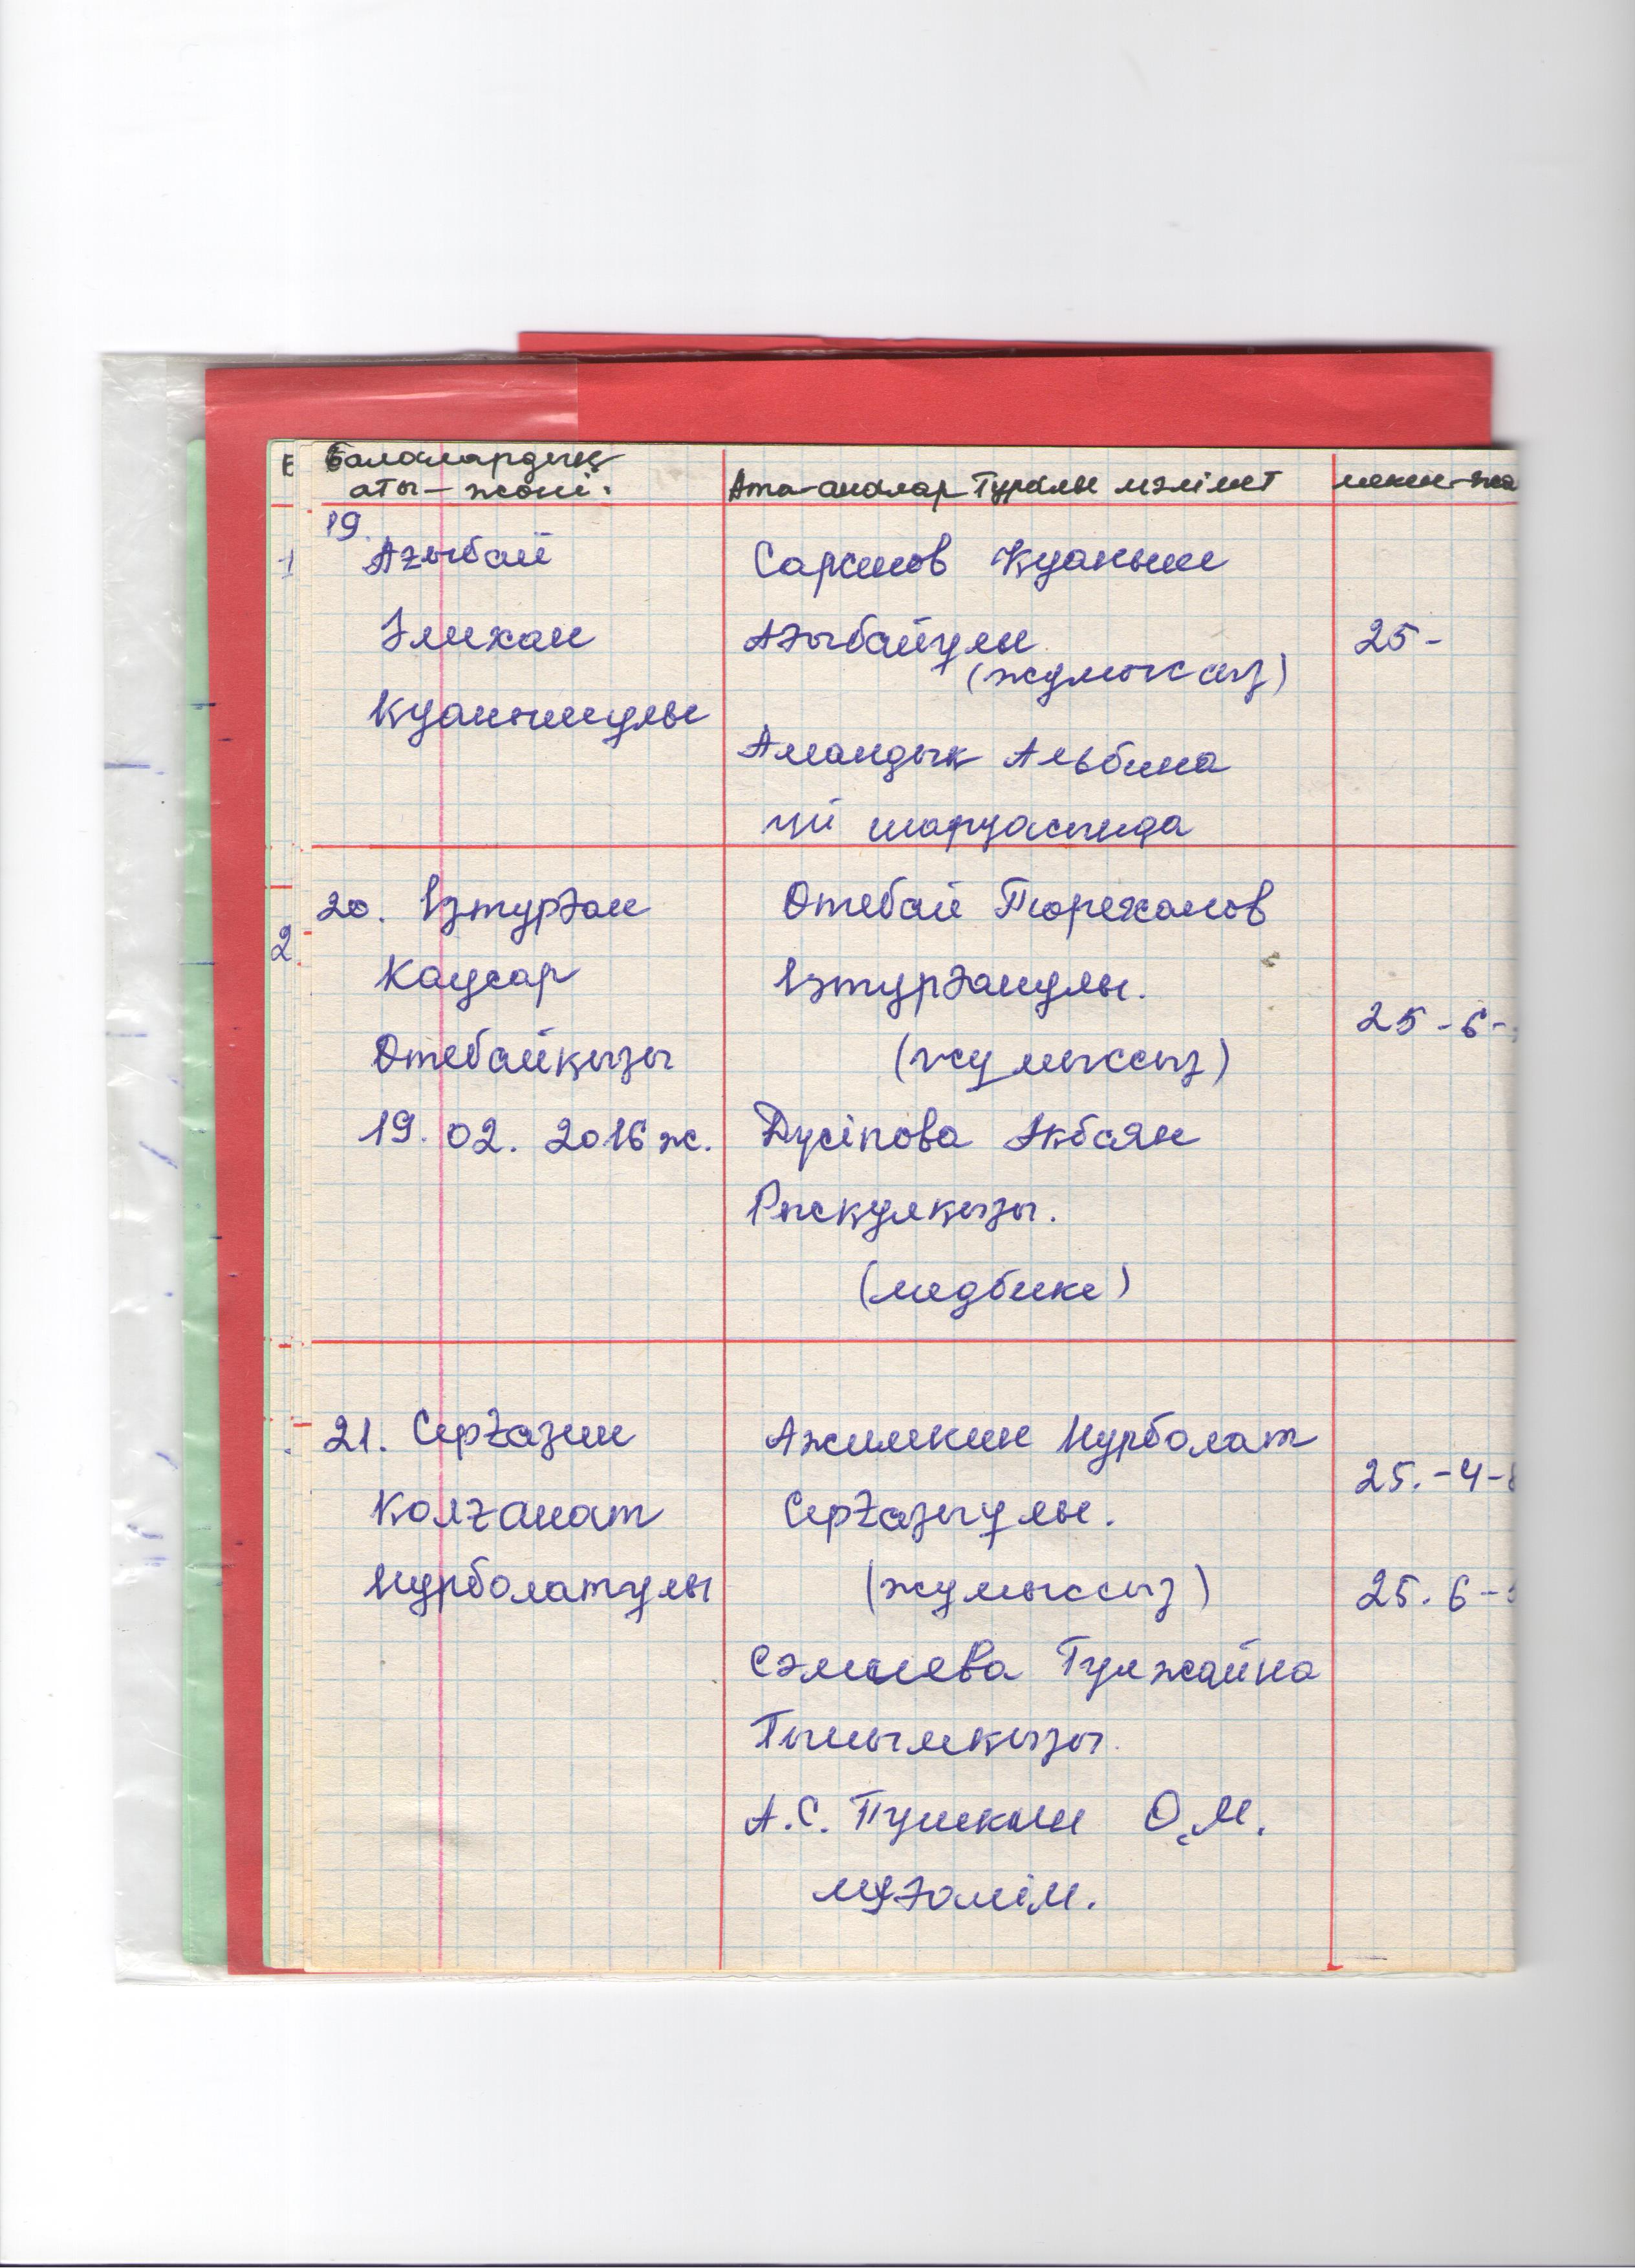 Балалардың
аты-жөні.
Ата-аналар туралы мәлімет
мекен-жа
19.
Ағыбай
Әлихан
Куанышулы
Сарсенов Куаныш
Ағыбайұлы
(жұмыссыз)
Амандық Альбина
үй шаруасында
25-
20. Ізтурған
Каусар
Өтебайқызы
19. 02. 2016 ж.
Өтебай Тюрежанов
Ізтурғанулы.
(жұмыссыз)
Дүсіпова Ақбаян
Рысқұлқызы.
(медбике)
25-6-
21. Серғазин
Колғанат
Нұрболатұлы
Ажимкин Нұрболат
Серғазыұлы.
(жұмыссыз)
Сәлиева Гулжайна
Тынымқызы.
А.С. Пушкин О.М.
мұғалім.
25.-4-
25. 6-